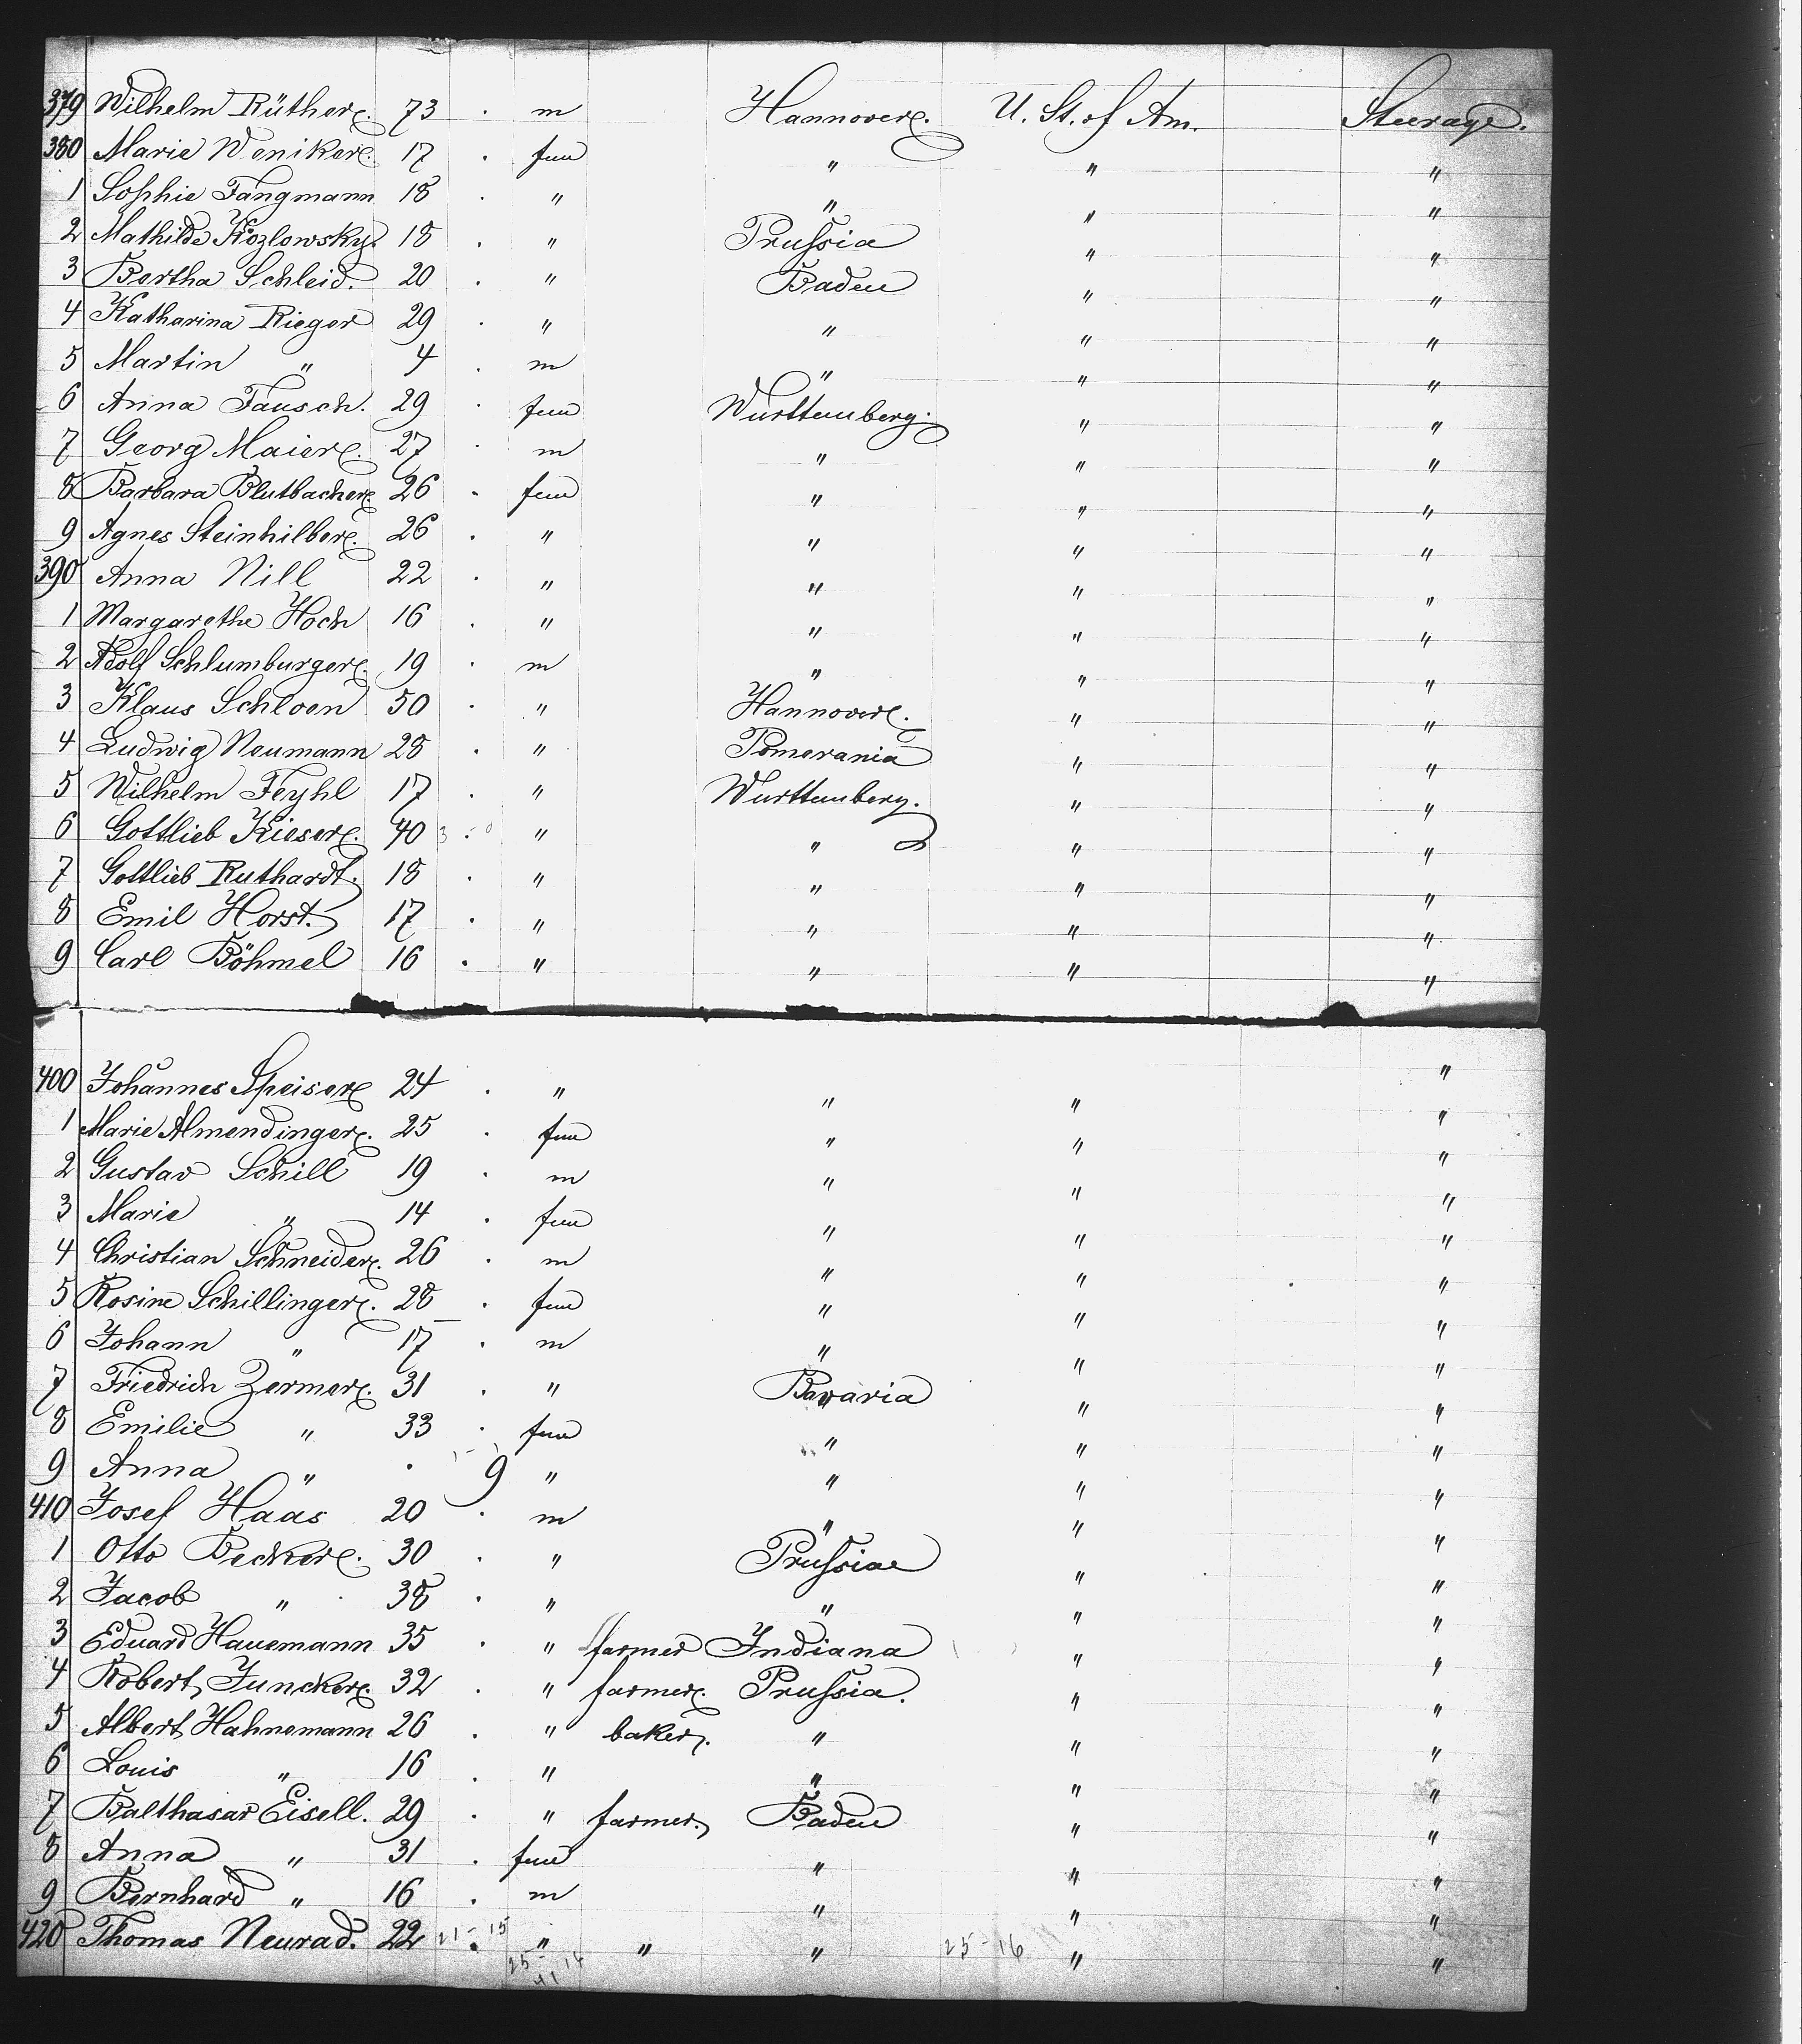 379 Wilhelm Rüther. 73 . m Hannover. U. St. of Am. Steerage.
380 Marie Weniker. 17 . fem " " "
1 Sophie Fangmann 18 . " " " "
2 Mathilde Kozlowsky. 18 . " Prussia " "
3 Bertha Schleid. 20 . " Baden " "
4 Katharina Rieger 29 . " " " "
5 Martin " 4 . m " " "
6 Anna Fausch. 29 . fem Wurttemberg. " "
7 Georg Maier. 27 . m " " "
8 Barbara Blutbacher. 26 . fem " " "
9 Agnes Steinhilber. 26 . " " " "
390 Anna Nill 22 . " " " "
1 Margarethe Hoch 16 . " " " "
2 Adolf Schlumburger. 19 . m " " "
3 Klaus Schloen 50 . " Hannover. " "
4 Ludwig Neumann 28 . " Pomerania " "
5 Wilhelm Feyhl 17 . " Wurttemberg. " "
6 Gottlieb Kieser. 40 . " " " "
7 Gottlieb Ruthardt. 18 . " " " "
8 Emil Horst. 17 . " " " "
9 Carl Böhmel 16 . " " " "
400 Johannes Speiser 24 . " " " "
1 Marie Almendinger. 25 . fem " " "
2 Gustav Schill 19 . m " " "
3 Marie " 14 . fem " " "
4 Christian Schneider. 26 . m " " "
5 Rosine Schillinger. 28 . fem " " "
6 Johann " 17 . m " " "
7 Friedrich Zermer. 31 . " Bavaria " "
8 Emilie " 33 . fem " " "
9 Anna " . 9 " " " "
410 Josef Haas 20 . m " " "
1 Otto Becker. 30 . " Prussia " "
2 Jacob " 38 . " " " "
3 Eduard Hauemann 35 . " farmer Indiana " "
4 Robert Juncker. 32 . " farmer. Prussia. " "
5 Albert Hahnemann 26 . " baker. " " "
6 Louis " 16 . " " " "
7 Balthasar Eisell. 29 . " farmer. Baden " "
8 Anna " 31 . fem " " "
9 Bernhard " 16 . m " " "
420 Thomas Neurad. 22 21-15 . " " " 25-16 " "
25-14
41